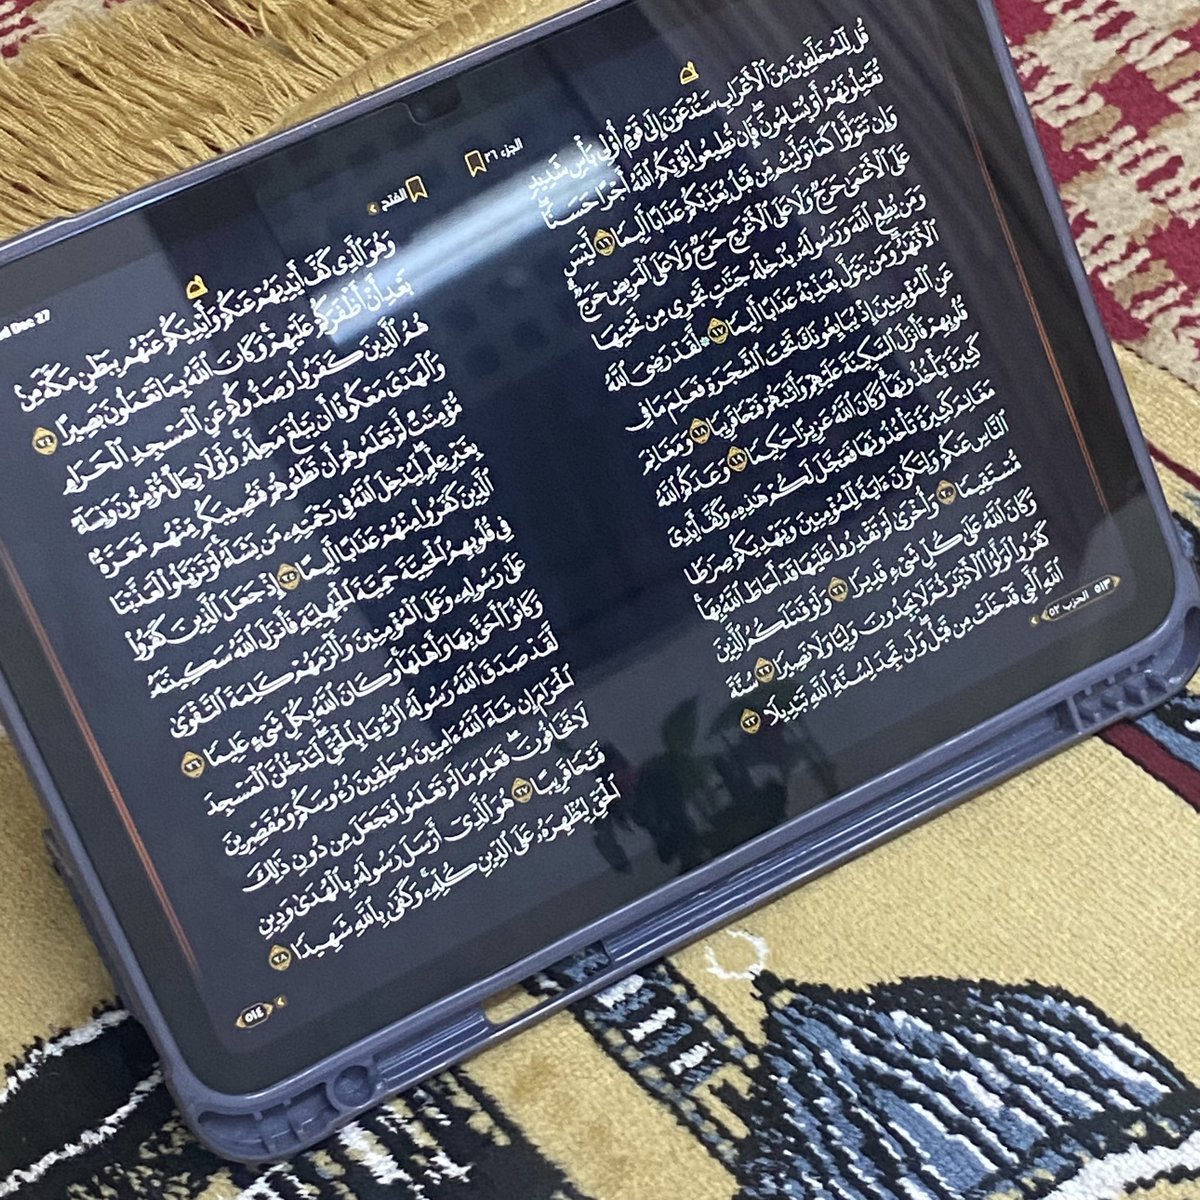 الجزء ٢٦
قُل لِّلۡمُخَلَّفِينَ مِنَ ٱلۡأَعۡرَابِ سَتُدۡعَوۡنَ إِلَىٰ قَوۡمٍ أُوْلِي بَأۡسٖ شَدِيدٖ
تُقَٰتِلُونَهُمۡ أَوۡ يُسۡلِمُونَۖ فَإِن تُطِيعُواْ يُؤۡتِكُمُ ٱللَّهُ أَجۡرًا حَسَنٗاۖ
وَإِن تَتَوَلَّوۡاْ كَمَا تَوَلَّيۡتُم مِّن قَبۡلُ يُعَذِّبۡكُمۡ عَذَابًا أَلِيمٗا ١٦ لَّيۡسَ
عَلَى ٱلۡأَعۡمَىٰ حَرَجٞ وَلَا عَلَى ٱلۡأَعۡرَجِ حَرَجٞ وَلَا عَلَى ٱلۡمَرِيضِ حَرَجٞۗ
وَمَن يُطِعِ ٱللَّهَ وَرَسُولَهُۥ يُدۡخِلۡهُ جَنَّٰتٖ تَجۡرِي مِن تَحۡتِهَا
ٱلۡأَنۡهَٰرُۖ وَمَن يَتَوَلَّ يُعَذِّبۡهُ عَذَابًا أَلِيمٗا ١٧ ۞ لَّقَدۡ رَضِيَ ٱللَّهُ
عَنِ ٱلۡمُؤۡمِنِينَ إِذۡ يُبَايِعُونَكَ تَحۡتَ ٱلشَّجَرَةِ فَعَلِمَ مَا فِي
قُلُوبِهِمۡ فَأَنزَلَ ٱلسَّكِينَةَ عَلَيۡهِمۡ وَأَثَٰبَهُمۡ فَتۡحٗا قَرِيبٗا ١٨ وَمَغَانِمَ
كَثِيرَةٗ يَأۡخُذُونَهَاۗ وَكَانَ ٱللَّهُ عَزِيزًا حَكِيمٗا ١٩ وَعَدَكُمُ ٱللَّهُ
مَغَانِمَ كَثِيرَةٗ تَأۡخُذُونَهَا فَعَجَّلَ لَكُمۡ هَٰذِهِۦ وَكَفَّ أَيۡدِيَ
ٱلنَّاسِ عَنكُمۡ وَلِتَكُونَ ءَايَةٗ لِّلۡمُؤۡمِنِينَ وَيَهۡدِيَكُمۡ صِرَٰطٗا
مُّسۡتَقِيمٗا ٢٠ وَأُخۡرَىٰ لَمۡ تَقۡدِرُواْ عَلَيۡهَا قَدۡ أَحَاطَ ٱللَّهُ بِهَاۚ
وَكَانَ ٱللَّهُ عَلَىٰ كُلِّ شَيۡءٖ قَدِيرٗا ٢١ وَلَوۡ قَٰتَلَكُمُ ٱلَّذِينَ
كَفَرُواْ لَوَلَّوُاْ ٱلۡأَدۡبَٰرَ ثُمَّ لَا يَجِدُونَ وَلِيّٗا وَلَا نَصِيرٗا ٢٢ سُنَّةَ
ٱللَّهِ ٱلَّتِي قَدۡ خَلَتۡ مِن قَبۡلُۖ وَلَن تَجِدَ لِسُنَّةِ ٱللَّهِ تَبۡدِيلٗا ٢٣
٥١٣ الحزب ٥٢
الفتح
Dec 27
وَهُوَ ٱلَّذِي كَفَّ أَيۡدِيَهُمۡ عَنكُمۡ وَأَيۡدِيَكُمۡ عَنۡهُم بِبَطۡنِ مَكَّةَ مِنۢ
بَعۡدِ أَنۡ أَظۡفَرَكُمۡ عَلَيۡهِمۡۚ وَكَانَ ٱللَّهُ بِمَا تَعۡمَلُونَ بَصِيرًا ٢٤
هُمُ ٱلَّذِينَ كَفَرُواْ وَصَدُّوكُمۡ عَنِ ٱلۡمَسۡجِدِ ٱلۡحَرَامِ
وَٱلۡهَدۡيَ مَعۡكُوفًا أَن يَبۡلُغَ مَحِلَّهُۥۚ وَلَوۡلَا رِجَالٞ مُّؤۡمِنُونَ وَنِسَآءٞ
مُّؤۡمِنَٰتٞ لَّمۡ تَعۡلَمُوهُمۡ أَن تَطَـُٔوهُمۡ فَتُصِيبَكُم مِّنۡهُم مَّعَرَّةُۢ
بِغَيۡرِ عِلۡمٖۖ لِّيُدۡخِلَ ٱللَّهُ فِي رَحۡمَتِهِۦ مَن يَشَآءُۚ لَوۡ تَزَيَّلُواْ لَعَذَّبۡنَا
ٱلَّذِينَ كَفَرُواْ مِنۡهُمۡ عَذَابًا أَلِيمًا ٢٥ إِذۡ جَعَلَ ٱلَّذِينَ كَفَرُواْ
فِي قُلُوبِهِمُ ٱلۡحَمِيَّةَ حَمِيَّةَ ٱلۡجَٰهِلِيَّةِ فَأَنزَلَ ٱللَّهُ سَكِينَتَهُۥ
عَلَىٰ رَسُولِهِۦ وَعَلَى ٱلۡمُؤۡمِنِينَ وَأَلۡزَمَهُمۡ كَلِمَةَ ٱلتَّقۡوَىٰ
وَكَانُوٓاْ أَحَقَّ بِهَا وَأَهۡلَهَاۚ وَكَانَ ٱللَّهُ بِكُلِّ شَيۡءٍ عَلِيمٗا ٢٦
لَّقَدۡ صَدَقَ ٱللَّهُ رَسُولَهُ ٱلرُّءۡيَا بِٱلۡحَقِّۖ لَتَدۡخُلُنَّ ٱلۡمَسۡجِدَ
ٱلۡحَرَامَ إِن شَآءَ ٱللَّهُ ءَامِنِينَ مُحَلِّقِينَ رُءُوسَكُمۡ وَمُقَصِّرِينَ
لَا تَخَافُونَۖ فَعَلِمَ مَا لَمۡ تَعۡلَمُواْ فَجَعَلَ مِن دُونِ ذَٰلِكَ
فَتۡحٗا قَرِيبًا ٢٧ هُوَ ٱلَّذِيٓ أَرۡسَلَ رَسُولَهُۥ بِٱلۡهُدَىٰ وَدِينِ
ٱلۡحَقِّ لِيُظۡهِرَهُۥ عَلَى ٱلدِّينِ كُلِّهِۦۚ وَكَفَىٰ بِٱللَّهِ شَهِيدٗا ٢٨
٥١٤